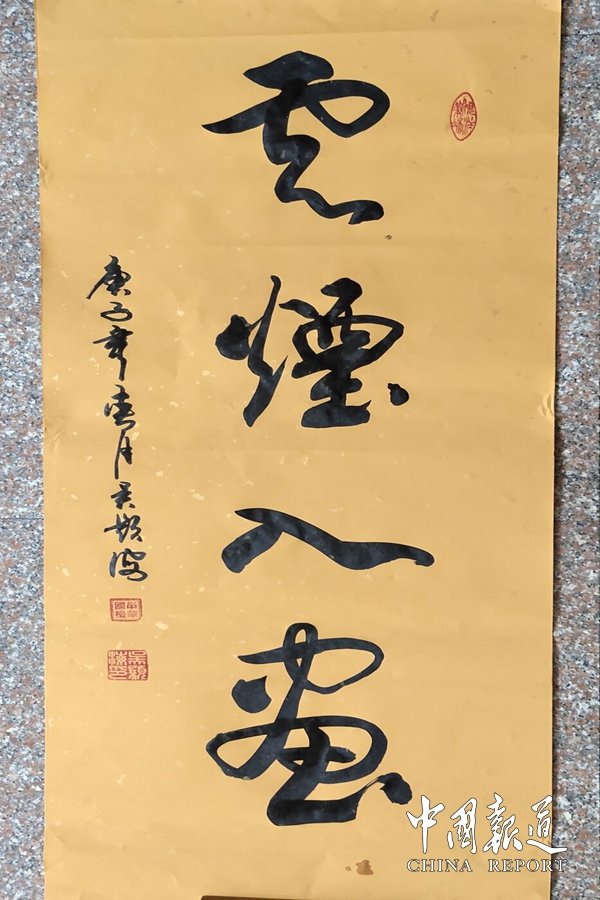 雲煙入畫
庚子年春月吴
中國報道
CHINA REPORT